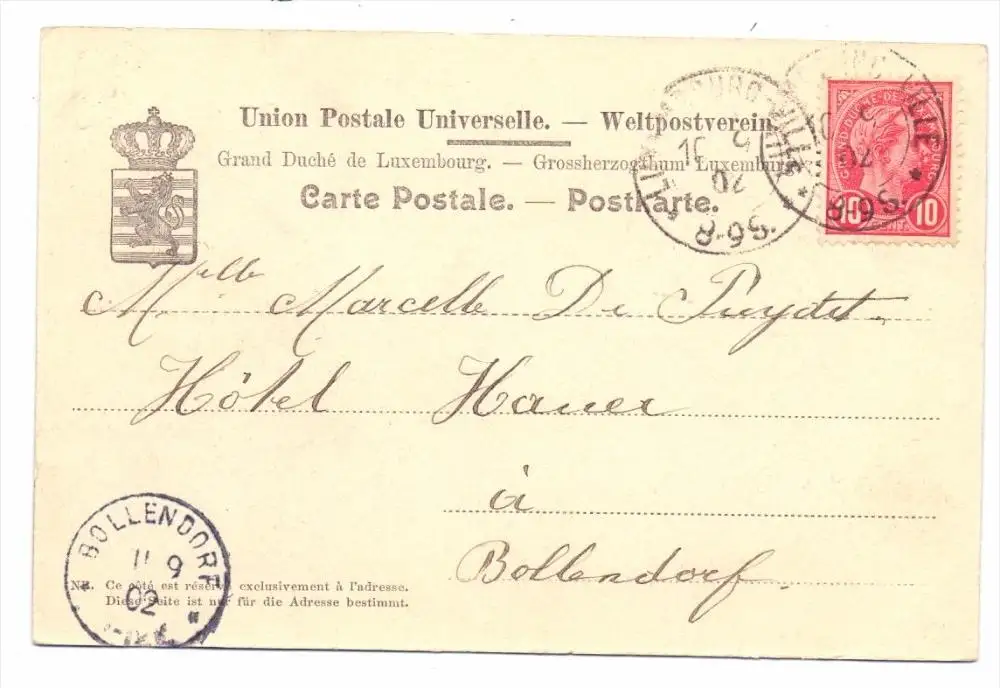 Union Postale Universelle. — Weltpostverein.
Grand Duché de Luxembourg. — Grossherzogthum Luxemburg.
Carte Postale. — Postkarte.
LUXEMBOURG-VILLE
10 9
02
8-9S.
LUXEMBOURG-VILLE
02
8-9S.
GRAND DUCHÉ DE LUXEMBOURG
10 10
CENTS
Melle Marcelle De Puydt.
Hôtel Hauer
à
Bollendorf
BOLLENDORF
11 9
02
NB. Ce côté est réservé exclusivement à l'adresse.
Diese Seite ist nur für die Adresse bestimmt.